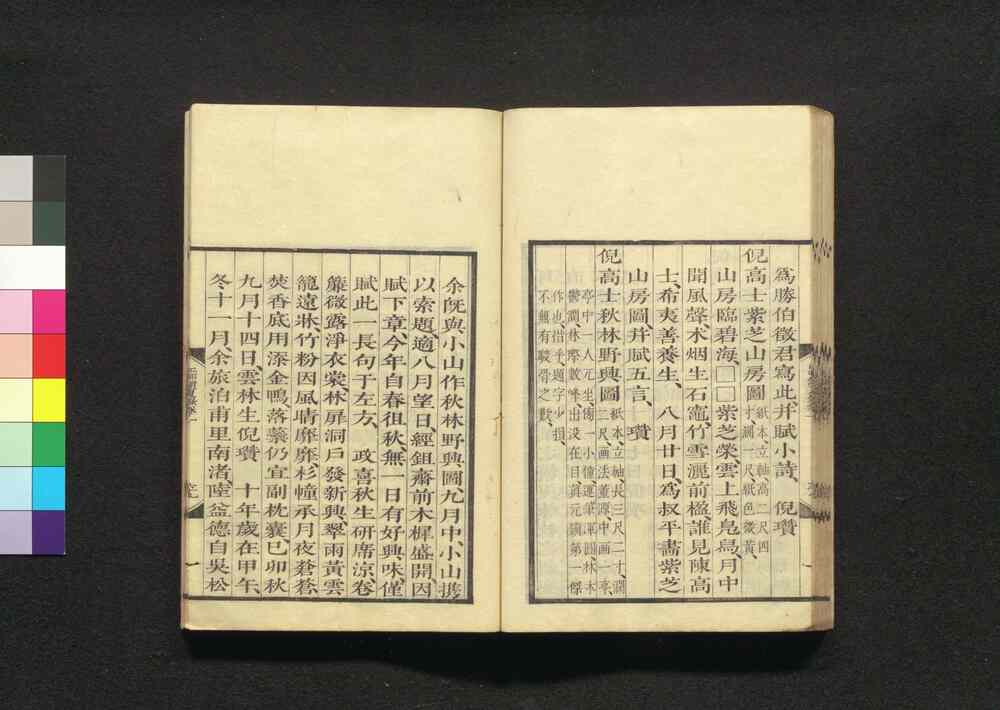 爲勝伯徵君寫此并賦小詩、 倪瓚
倪高士紫芝山房圖 紙本、立軸高二尺四
寸、濶一尺、紙色微黃、
山房臨碧海、□□紫芝榮雲上飛鳧舄、月中
聞風聲、术烟生石竈、竹雪灑前楹誰見陳高
士、希夷善養生、 八月廿日、爲叔平畵紫芝
山房圖并賦五言、 瓚
倪高士秋林野興圖 紙本、立軸長三尺二寸、濶
二尺、画法董源中画一亭、
亭中一人兀坐傍一小僮運筆渾圓、林木
鬱潤、林摩數峰出沒在目眞元鎭第一傑
作也、惜乎題字少損、
不無有駿骨之歎、
余旣與小山作秋林野興圖九月中、小山携
以索題、適八月望日、經鉏齋前木樨盛開、因
賦下章、今年自春徂秋、無一日有好興味、僅
賦此一長句于左方、 政喜秋生研席凉、卷
簾微露淨衣裳林扉洞戶發新興翠雨黃雲
籠遠牀、竹粉因風晴靡靡杉幢承月夜蒼蒼、
焚香底用添金鴨落蘂仍宜副枕囊已卯秋
九月十四日、雲林生倪瓚 十年歲在甲午、
冬十一月、余旅泊甫里南渚、陸益德自吳松